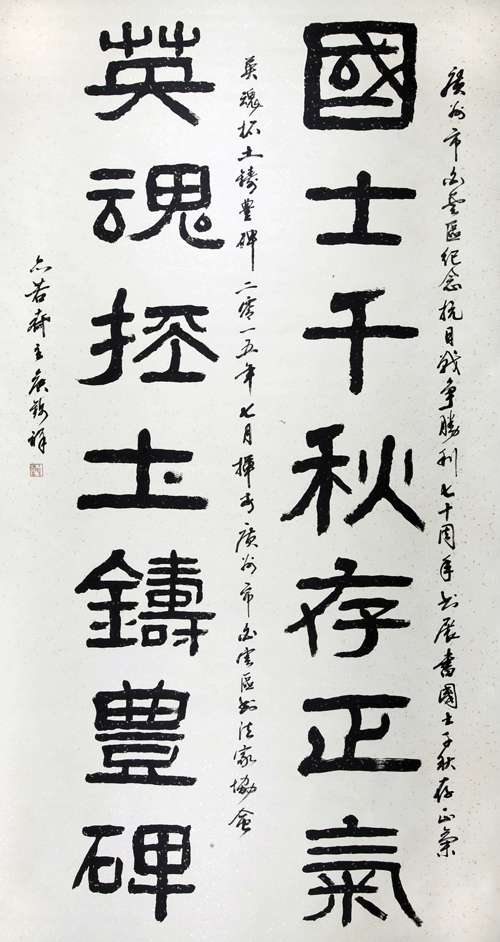 廣州市白雲區紀念抗日戰爭勝利七十周年书展書國士千秋存正氣
國士千秋存正氣
英魂抔土鑄豊碑 二零一五年七月揮于廣州市白雲區书法家協會
英魂抔土鑄豊碑
若齋主 祥